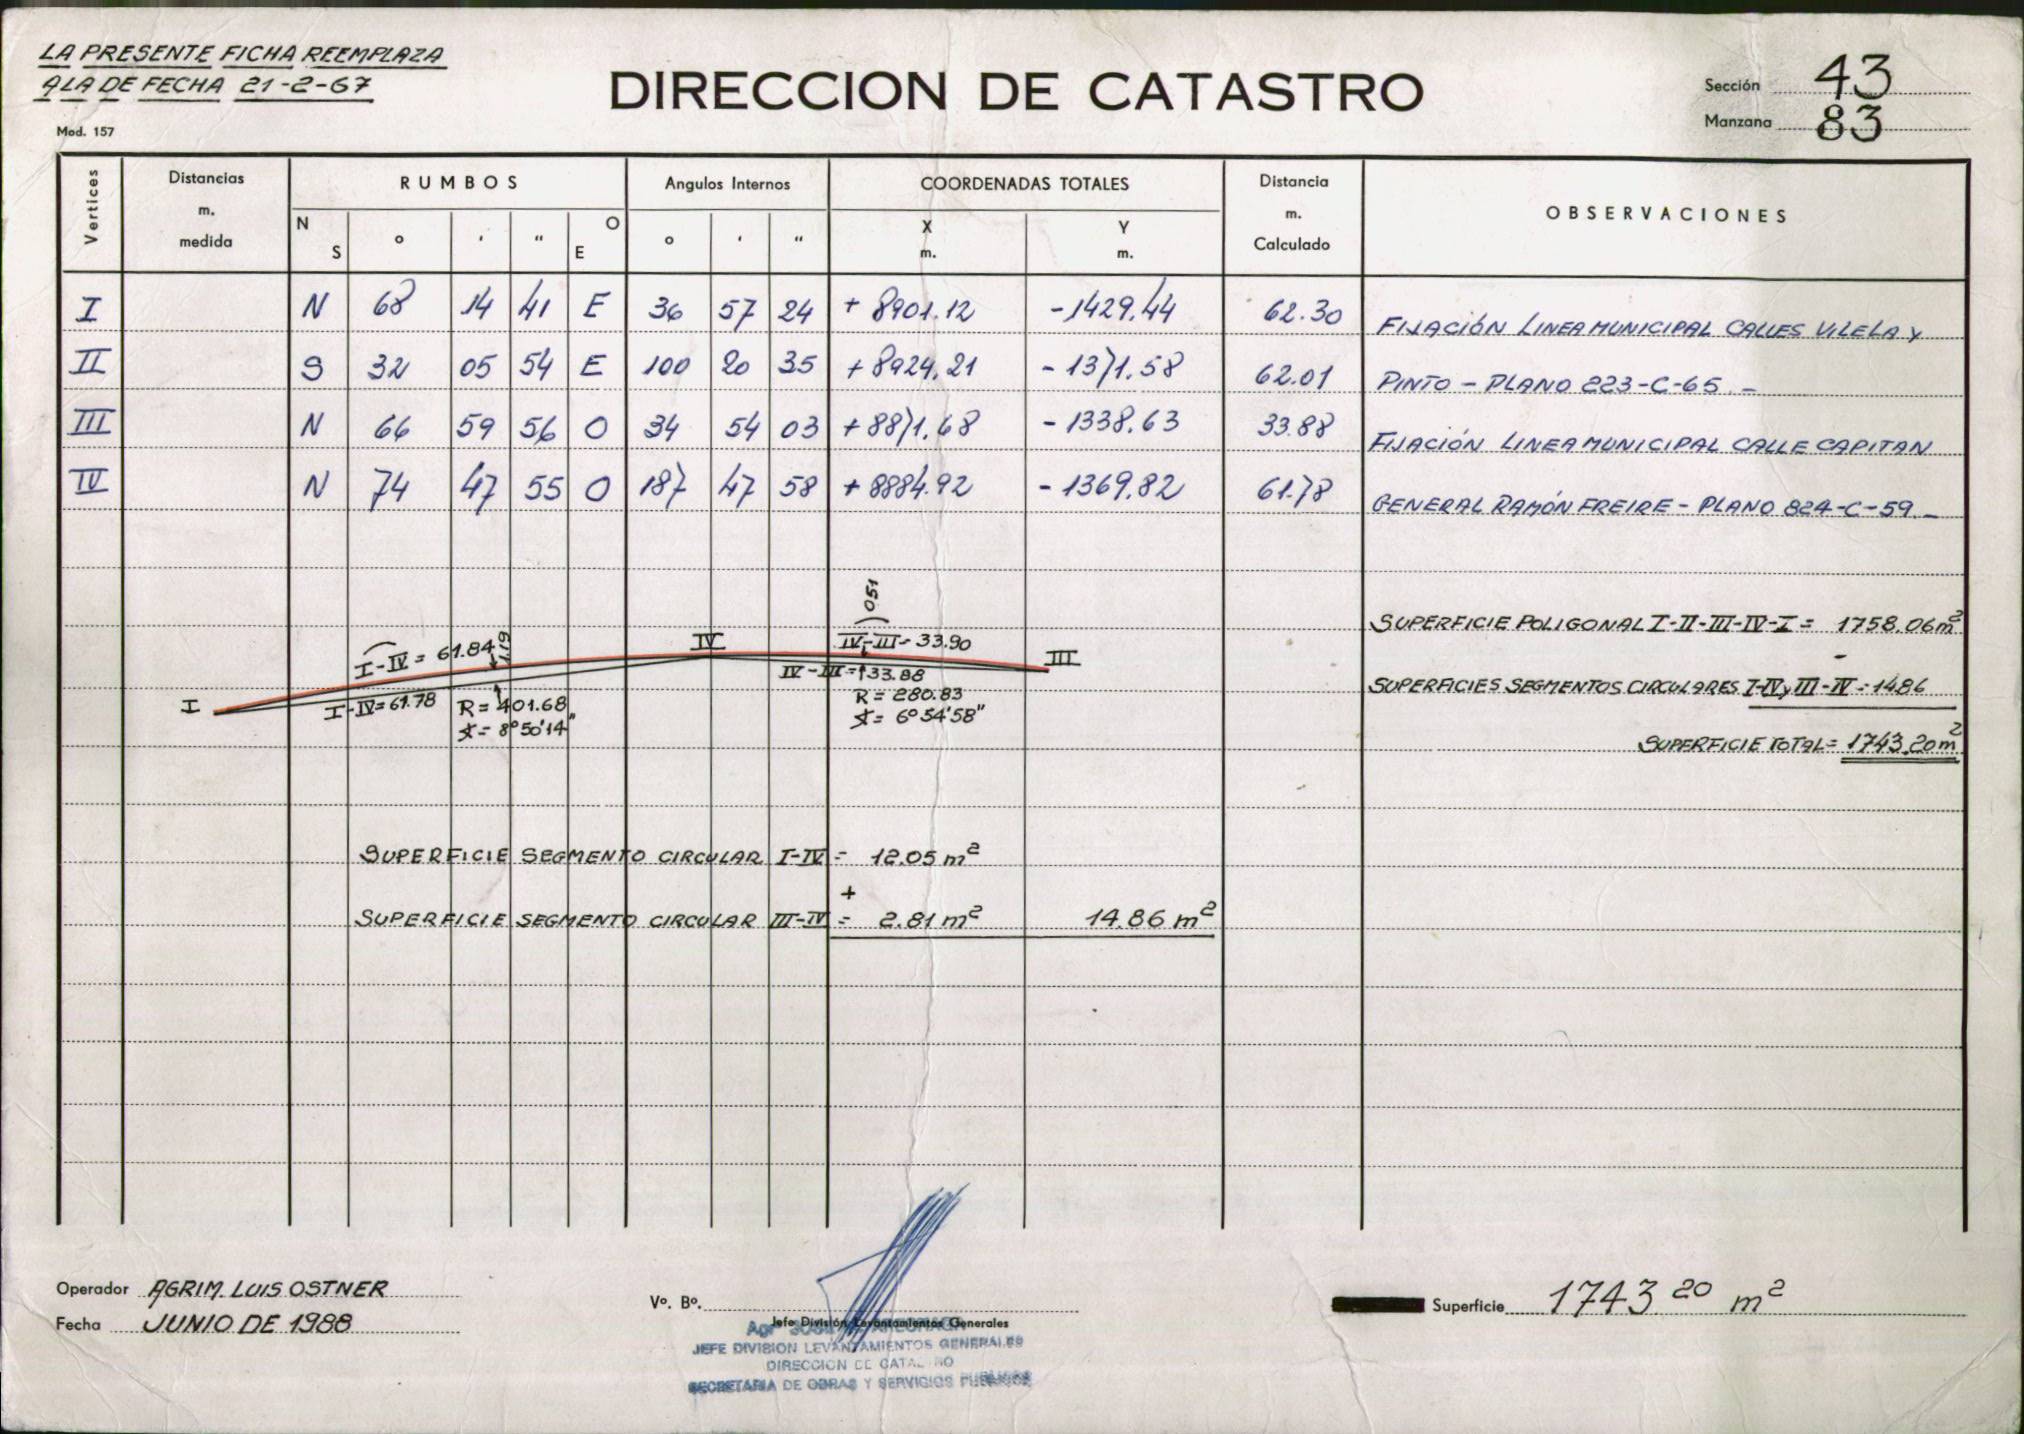 LA PRESENTE FICHA REEMPLAZA
A LA DE FECHA 21-2-67
DIRECCION DE CATASTRO
Sección 43
Manzana 83
Mod. 157
Vertices
Distancias m. medida
RUMBOS
Angulos Internos
COORDENADAS TOTALES
Distancia m. Calculado
OBSERVACIONES
N S ° ' " O E ° ' " X m. Y m.
I N 68 14 41 E 36 57 24 + 8901.12 -1429.44 62.30 FIJACIÓN LINEA MUNICIPAL CALLES VILELA Y
II S 32 05 54 E 100 20 35 +8924.21 -1371.58 62.01 PINTO - PLANO 223-C-65.-
III N 66 59 56 O 34 54 03 +8871.68 -1338.63 33.88 FIJACIÓN LINEA MUNICIPAL CALLE CAPITAN
IV N 74 47 55 O 187 47 58 +8884.92 -1369.82 61.78 GENERAL RAMÓN FREIRE - PLANO 824-C-59.-
SUPERFICIE POLIGONAL I-II-III-IV-I = 1758.06m²
-
SUPERFICIES SEGMENTOS CIRCULARES I-IV y III-IV = 14.86
SUPERFICIE TOTAL = 1743.20m²
I-IV = 61.84
1.19
IV
051
IV-III = 33.90
III
I
I-IV = 61.78
R = 401.68
∡ = 8°50'14"
IV-III = 33.88
R = 280.83
∡ = 6°54'58"
SUPERFICIE SEGMENTO CIRCULAR I-IV = 12.05 m²
+
SUPERFICIE SEGMENTO CIRCULAR III-IV = 2.81 m² 14.86 m²
Operador AGRIM. LUIS OSTNER
Fecha JUNIO DE 1988
Vº. Bº.
Jefe División Levantamientos Generales
JEFE DIVISION LEVANTAMIENTOS GENERALES
DIRECCION DE CATASTRO
SECRETARIA DE OBRAS Y SERVICIOS PUBLICOS
Superficie 1743 20 m²